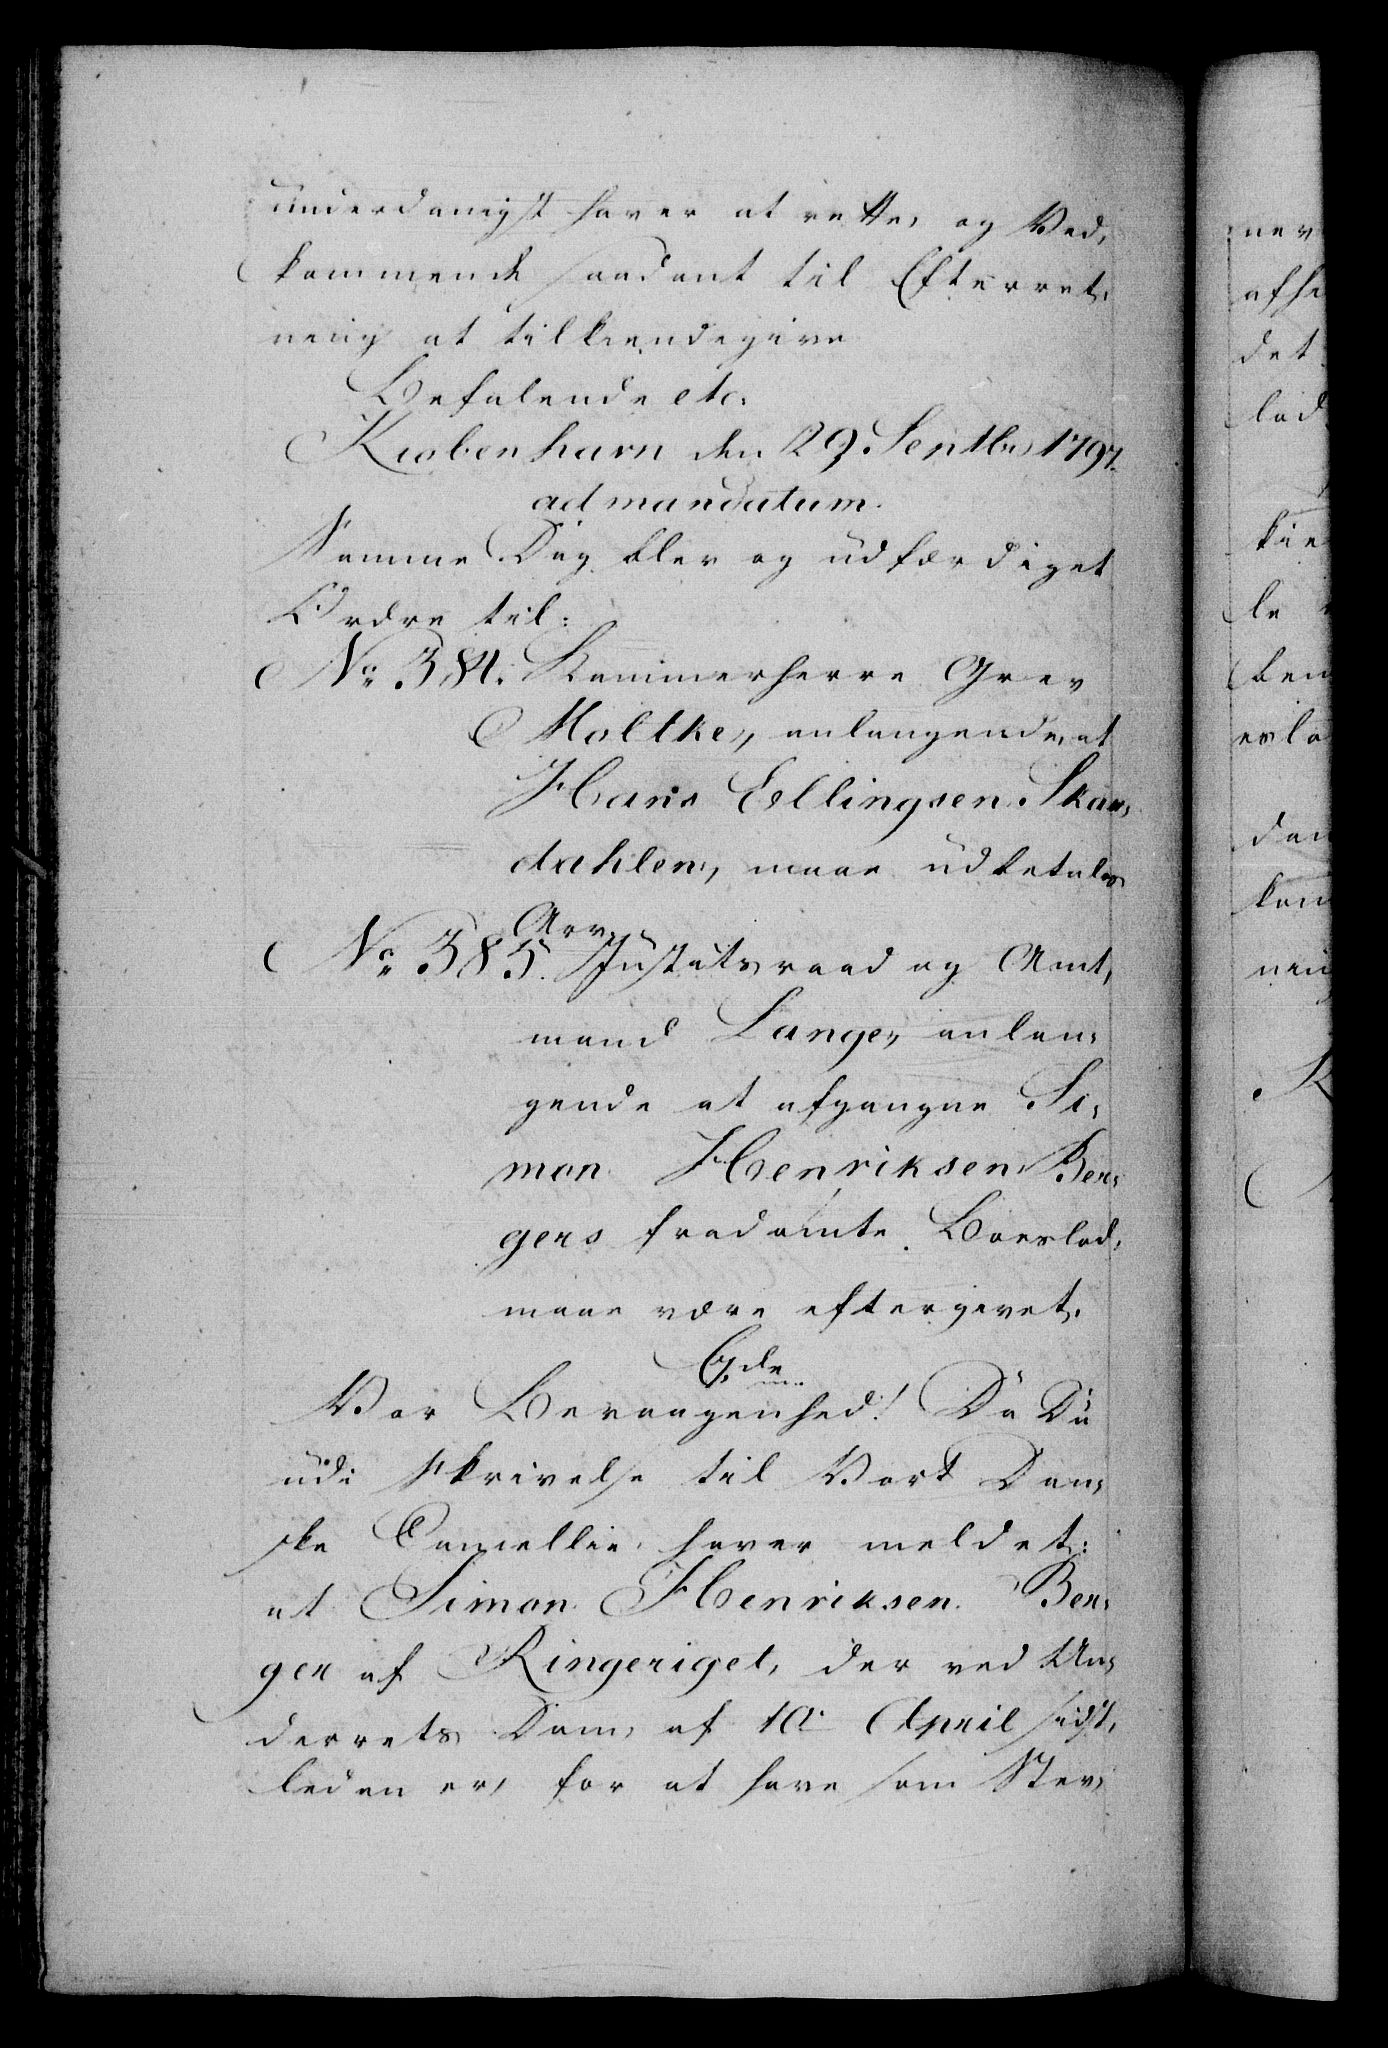 underdanigst haver at rette, og Ved¬
kommende saadant til Efterret¬
ning at tilkiendegive
Befalende etc.
Kiøbenhavn den 29. Septbr 1797.
ad mandatum.
Samme Dag blev og udfærdiget
Ordre til:
No. 384. Kammerherre Grev
Moltke, anlangende, at
Hans Ellingsen Skar¬
dahlen, maae udbetales
Arv.
No. 385. Justitsraad og Amt¬
mand Lange, anlan¬
gende at afgangne Si¬
mon Henriksen Ber¬
gers fradømte Boeslod,
maae være eftergivet.
G.de
Vor Bevaagenhed! Da Du
udi Skrivelse til Vort Dan¬
ske Cancellie haver meldet:
at Simon Henriksen Ber¬
ger af Ringeriget, der ved Un¬
derrets Dom, af 10. April sidst¬
leden er, for at have som Stev¬
ner
afhe
det
lod
kie
le
ben
eslo
den
kom
nin
K